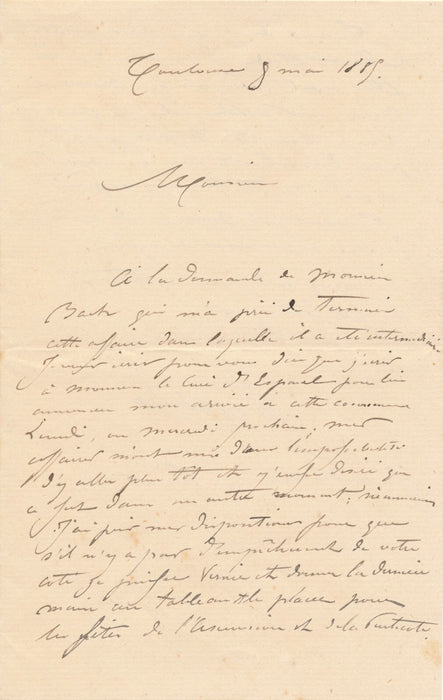 Toulouse 8 mai 1885.
Monsieur
À la demande de Monsieur
qui m'a prié de terminer
cette affaire dans laquelle il a été intermédiaire
Je vous écris pour vous dire que j'écris
à monsieur le Curé d' pour lui
annoncer mon arrivée à cette commune
Lundi, ou mercredi prochain; mes
affaires m'ont mis dans l'impossibilité
d'y aller plus tôt et
a fut dans un autre moment; néanmoins
J'ai pris mes dispositions pour que
s'il n'y a pas d'empêchement de votre
côté je puisse vernir et donner la dernière
main au tableau et le placer pour
les fêtes de l'Ascension et de la Pentecôte.